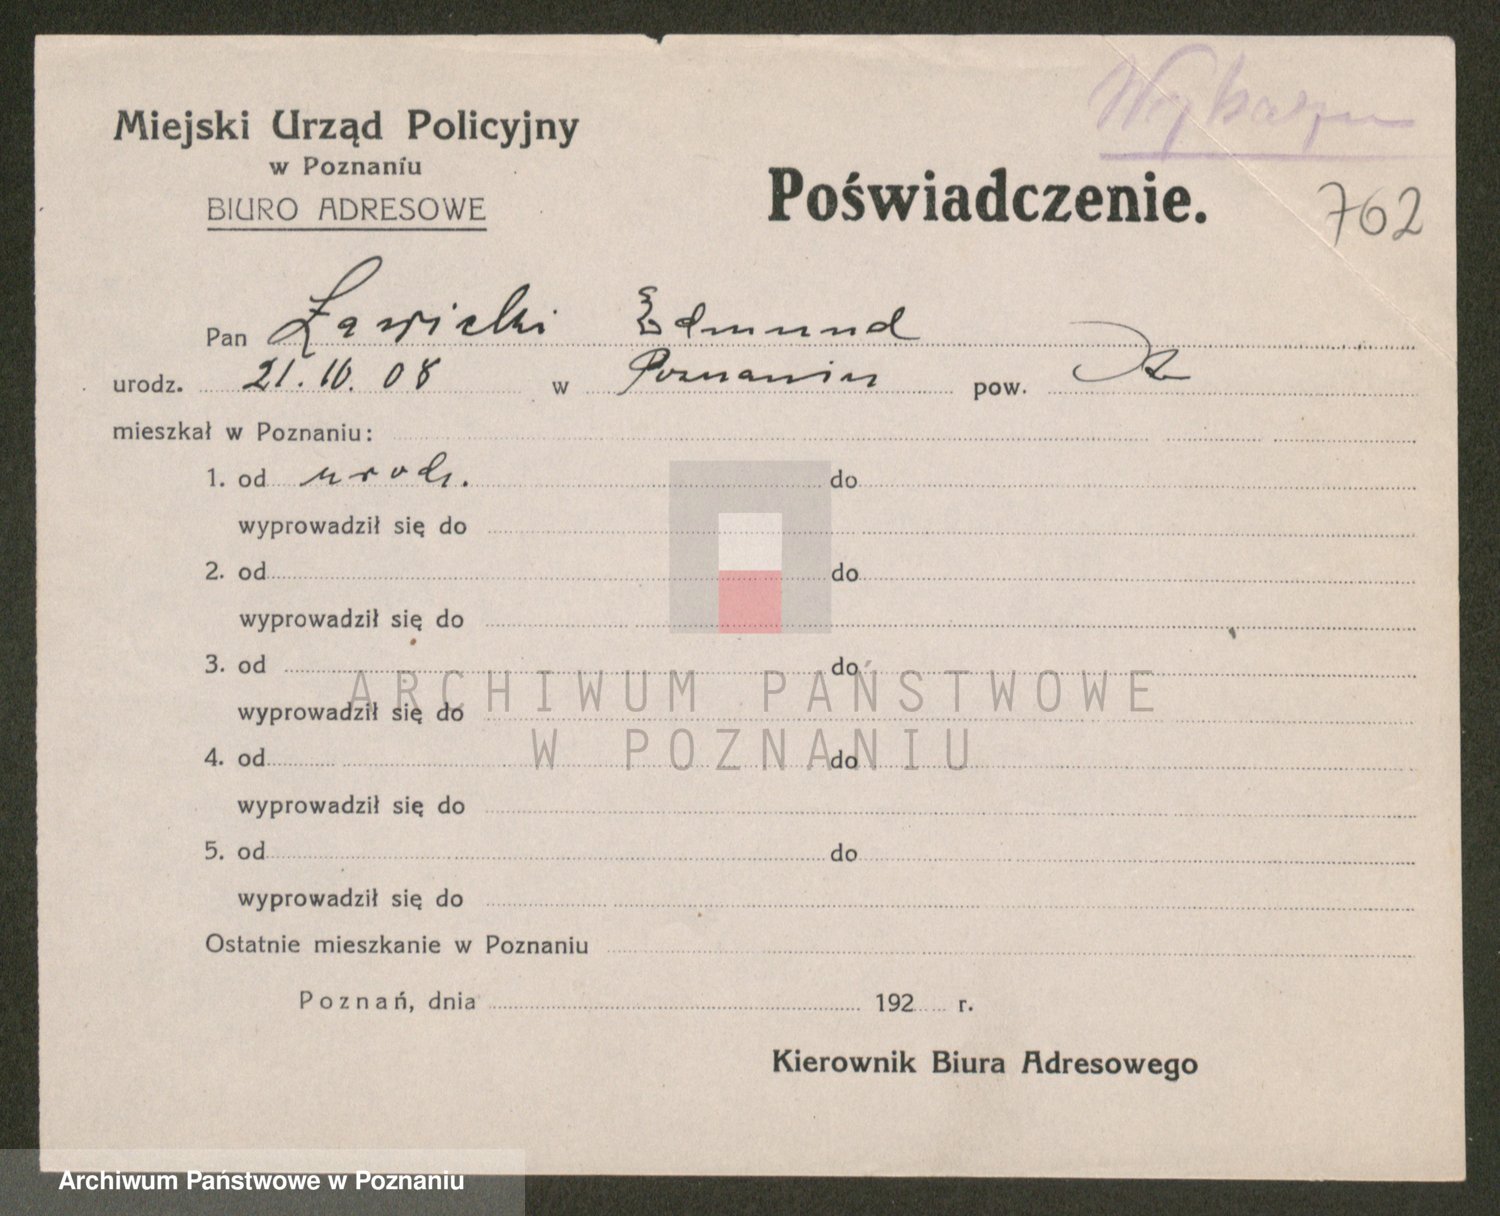 762
Miejski Urząd Policyjny
w Poznaniu
BIURO ADRESOWE
Poświadczenie.
Pan Ławicki Edmund
urodz. 21. 10. 08 w Poznaniu pow.
mieszkał w Poznaniu:
1. od urodz. do
wyprowadził się do
2. od do
wyprowadził się do
3. od do
wyprowadził się do
4. od do
wyprowadził się do
5. od do
wyprowadził się do
Ostatnie mieszkanie w Poznaniu
Poznań, dnia 192 r.
Kierownik Biura Adresowego
ARCHIWUM PAŃSTWOWE
W POZNANIU
Archiwum Państwowe w Poznaniu